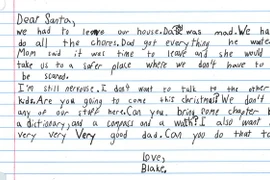 Dear Santa,
we had to leave our house. Dad was mad. We had
do all the chores. Dad got everything he wanted
Mom said it was time to leave and she would
take us to a safer place where we don't have to
be scared.
I'm still nervous. I don't want to talk to the other
kids. Are you going to come this christmas? We don't
any of our stuff here. Can you bring some chapter b
a dictionary, and a compass and a watch? I also want
very very very good dad. Can you do that to
Love,
Blake.